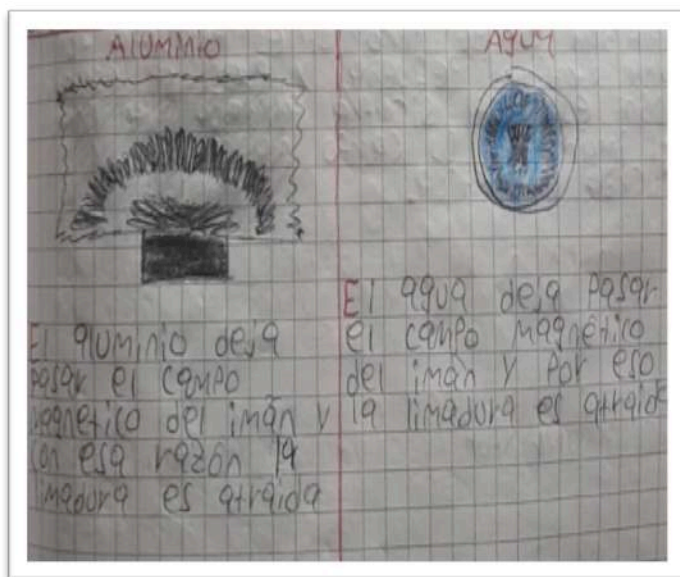 Aluminio
El aluminio deja
pasar el campo
magnético del imán y
con esa razón la
limadura es atraida
Agua
El agua deja pasar
el campo magnético
del imán y por eso
la limadura es atraida